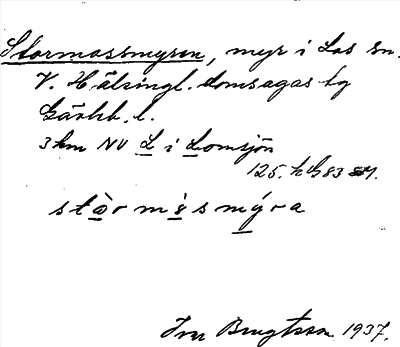 Stormossmyren, myr i Los sn.
V. Hälsingl. domsagas tg
Gävleb. l.
3 km NV L i Lomsjön
125. h G 83 SM.
stòrmòsmýra
Ivar Bengtsson 1937.